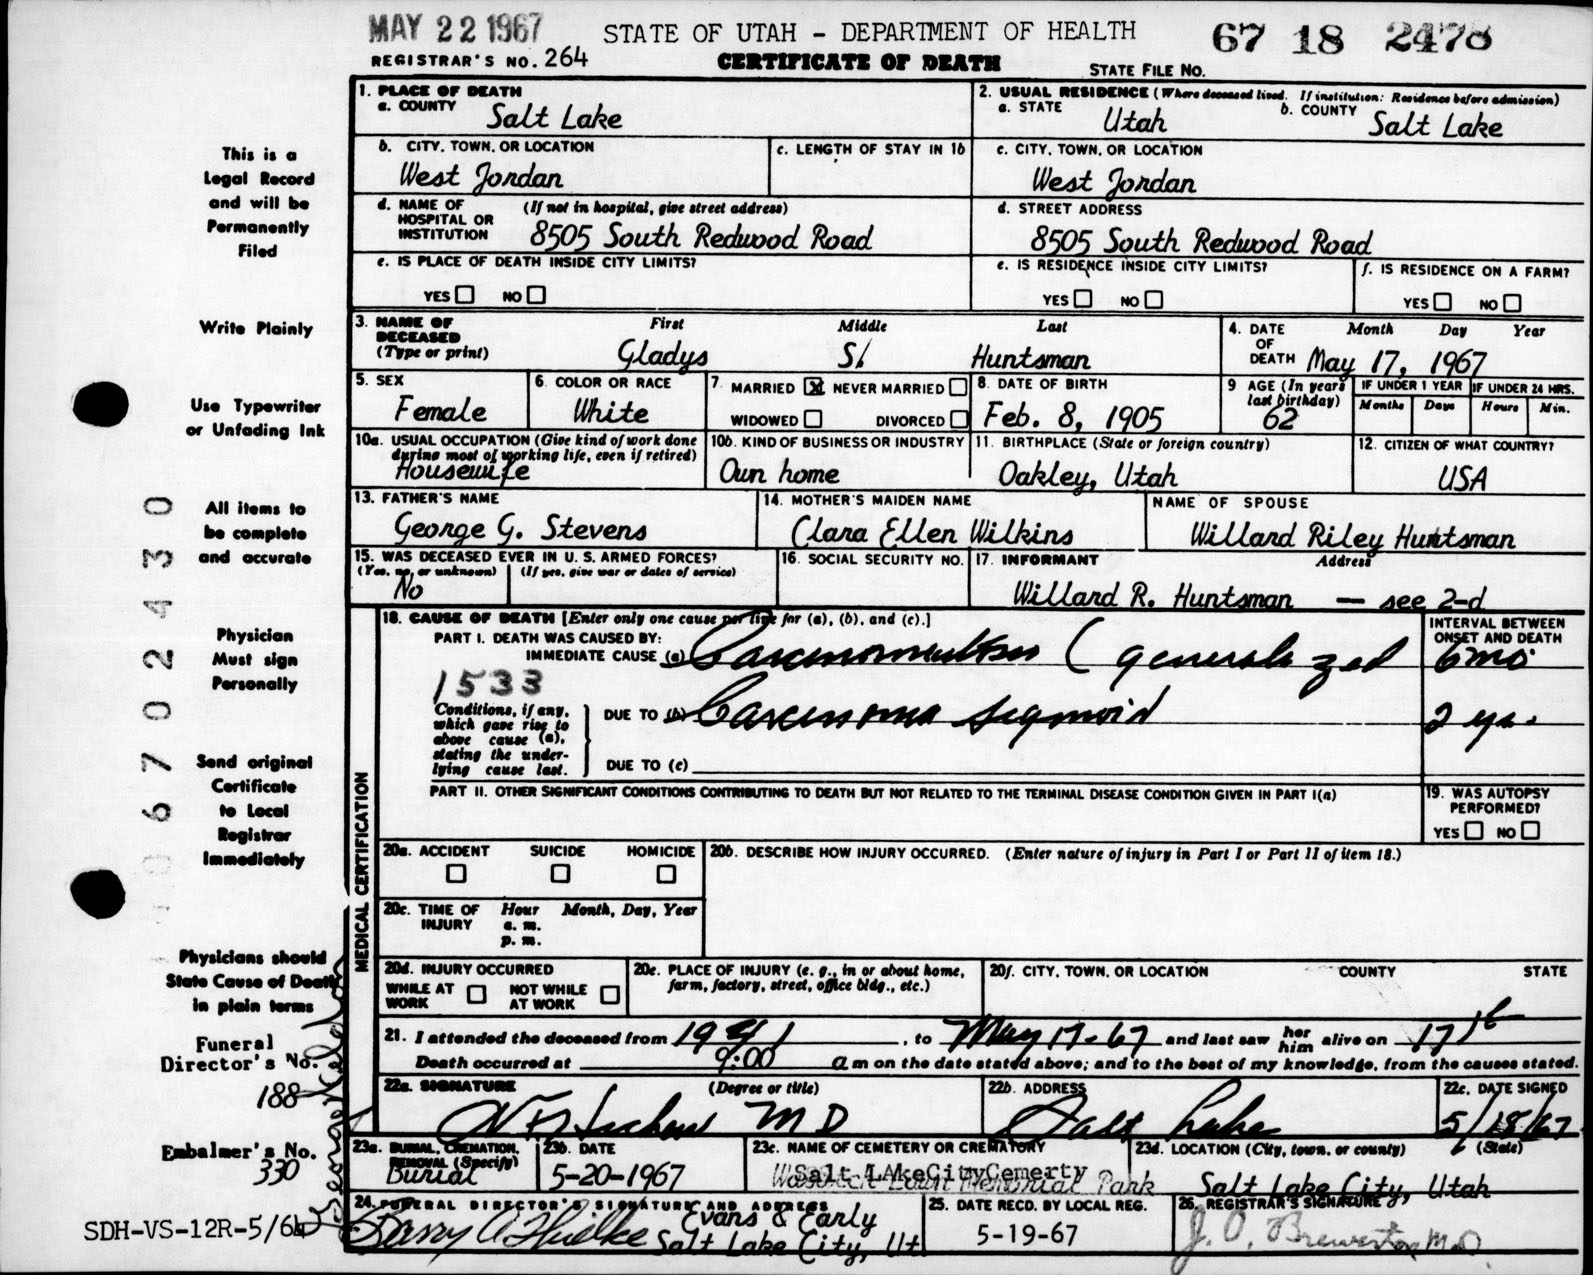 MAY 22 1967
STATE OF UTAH - DEPARTMENT OF HEALTH
67 18 2478
REGISTRAR'S NO. 264
CERTIFICATE OF DEATH
STATE FILE NO.
This is a
Legal Record
and will be
Permanently
Filed
Write Plainly
Use Typewriter
or Unfading Ink
All items to
be complete
and accurate
Physician
Must sign
Personally
Send original
Certificate
to Local
Registrar
Immediately
Physicians should
State Cause of Death
in plain terms
Funeral
Director's No.
188
Embalmer's No.
330
SDH-VS-12R-5/64
67 02430
1. PLACE OF DEATH
a. COUNTY Salt Lake
2. USUAL RESIDENCE (Where deceased lived. If institution: Residence before admission)
a. STATE Utah b. COUNTY Salt Lake
b. CITY, TOWN, OR LOCATION
West Jordan
c. LENGTH OF STAY IN 1b
c. CITY, TOWN, OR LOCATION
West Jordan
d. NAME OF HOSPITAL OR INSTITUTION (If not in hospital, give street address)
8505 South Redwood Road
d. STREET ADDRESS
8505 South Redwood Road
e. IS PLACE OF DEATH INSIDE CITY LIMITS?
YES NO
e. IS RESIDENCE INSIDE CITY LIMITS?
YES NO
f. IS RESIDENCE ON A FARM?
YES NO
3. NAME OF DECEASED (Type or print)
First Middle Last
Gladys S. Huntsman
4. DATE OF DEATH Month Day Year
May 17, 1967
5. SEX
Female
6. COLOR OR RACE
White
7. MARRIED X NEVER MARRIED
WIDOWED DIVORCED
8. DATE OF BIRTH
Feb. 8, 1905
9 AGE (In years last birthday)
62
IF UNDER 1 YEAR
Months Days
IF UNDER 24 HRS.
Hours Min.
10a. USUAL OCCUPATION (Give kind of work done during most of working life, even if retired)
Housewife
10b. KIND OF BUSINESS OR INDUSTRY
Own home
11. BIRTHPLACE (State or foreign country)
Oakley, Utah
12. CITIZEN OF WHAT COUNTRY?
USA
13. FATHER'S NAME
George G. Stevens
14. MOTHER'S MAIDEN NAME
Clara Ellen Wilkins
NAME OF SPOUSE
Willard Riley Huntsman
15. WAS DECEASED EVER IN U. S. ARMED FORCES?
(Yes, no, or unknown) (If yes, give war or dates of service)
No
16. SOCIAL SECURITY NO.
17. INFORMANT Address
Willard R. Huntsman — see 2-d
MEDICAL CERTIFICATION
18. CAUSE OF DEATH [Enter only one cause per line for (a), (b), and (c).]
INTERVAL BETWEEN ONSET AND DEATH
PART I. DEATH WAS CAUSED BY:
IMMEDIATE CAUSE (a) ( generalized 6 mo
1533
Conditions, if any, which gave rise to above cause (a), stating the underlying cause last.
DUE TO (b) Carcinoma sigmoid 2 yr.
DUE TO (c)
PART II. OTHER SIGNIFICANT CONDITIONS CONTRIBUTING TO DEATH BUT NOT RELATED TO THE TERMINAL DISEASE CONDITION GIVEN IN PART I(a)
19. WAS AUTOPSY PERFORMED?
YES NO
20a. ACCIDENT SUICIDE HOMICIDE
20b. DESCRIBE HOW INJURY OCCURRED. (Enter nature of injury in Part I or Part II of item 18.)
20c. TIME OF INJURY Hour Month, Day, Year
a. m.
p. m.
20d. INJURY OCCURRED
WHILE AT WORK NOT WHILE AT WORK
20e. PLACE OF INJURY (e. g., in or about home, farm, factory, street, office bldg., etc.)
20f. CITY, TOWN, OR LOCATION COUNTY STATE
21. I attended the deceased from 1941, to May 17-67 and last saw her him alive on 17th
Death occurred at 9:00 a m on the date stated above; and to the best of my knowledge, from the causes stated.
22a. SIGNATURE (Degree or title)
M D
22b. ADDRESS
Salt Lake
22c. DATE SIGNED
5/18/67
23a. BURIAL, CREMATION, REMOVAL (Specify)
Burial
23b. DATE
5-20-1967
23c. NAME OF CEMETERY OR CREMATORY
Salt LAkeCityCemerty
Wasatch Lawn Memorial Park
23d. LOCATION (City, town, or county) (State)
Salt Lake City, Utah
24. FUNERAL DIRECTOR'S SIGNATURE AND ADDRESS
Evans & Early
Salt Lake City, Ut
25. DATE RECD. BY LOCAL REG.
5-19-67
26. REGISTRAR'S SIGNATURE
J. O. Brewerton M.D.